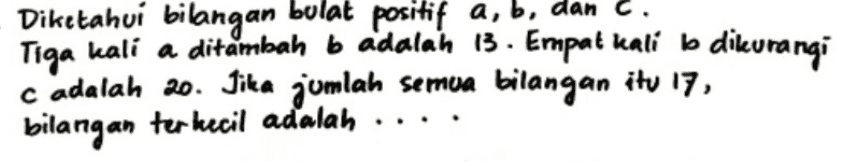 Diketahui bilangan bulat positif a, b, dan c.
Tiga kali a ditambah b adalah 13. Empat kali b dikurangi
c adalah 20. Jika jumlah semua bilangan itu 17,
bilangan terkecil adalah ....